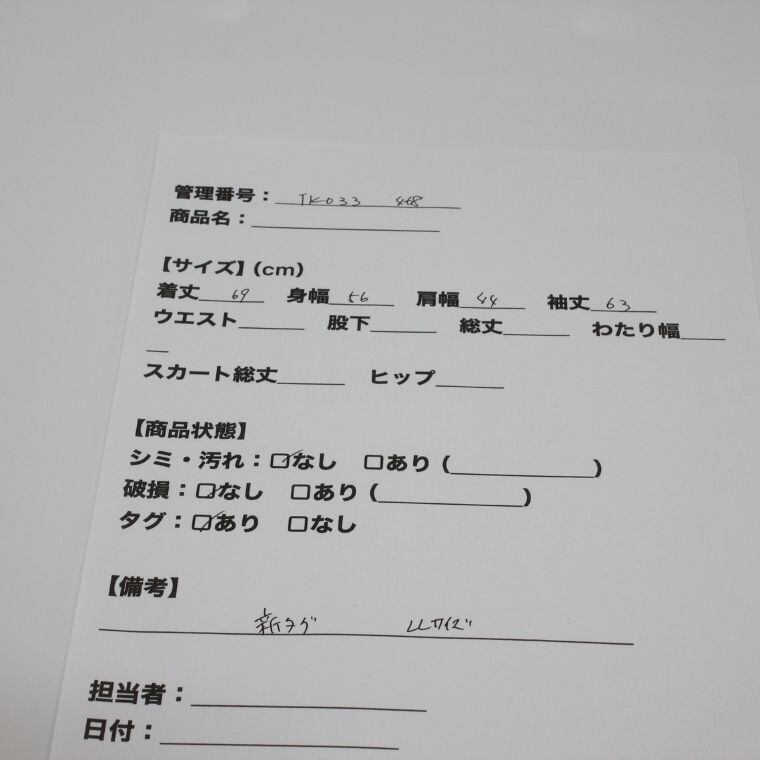 管理番号： TK033 468
商品名：
【サイズ】(cm)
着丈 69 身幅 56 肩幅 44 袖丈 63
ウエスト 股下 総丈 わたり幅
スカート総丈 ヒップ
【商品状態】
シミ・汚れ：☑なし ☐あり ( )
破損：☑なし ☐あり ( )
タグ：☑あり ☐なし
【備考】
新タグ LLサイズ
担当者：
日付：